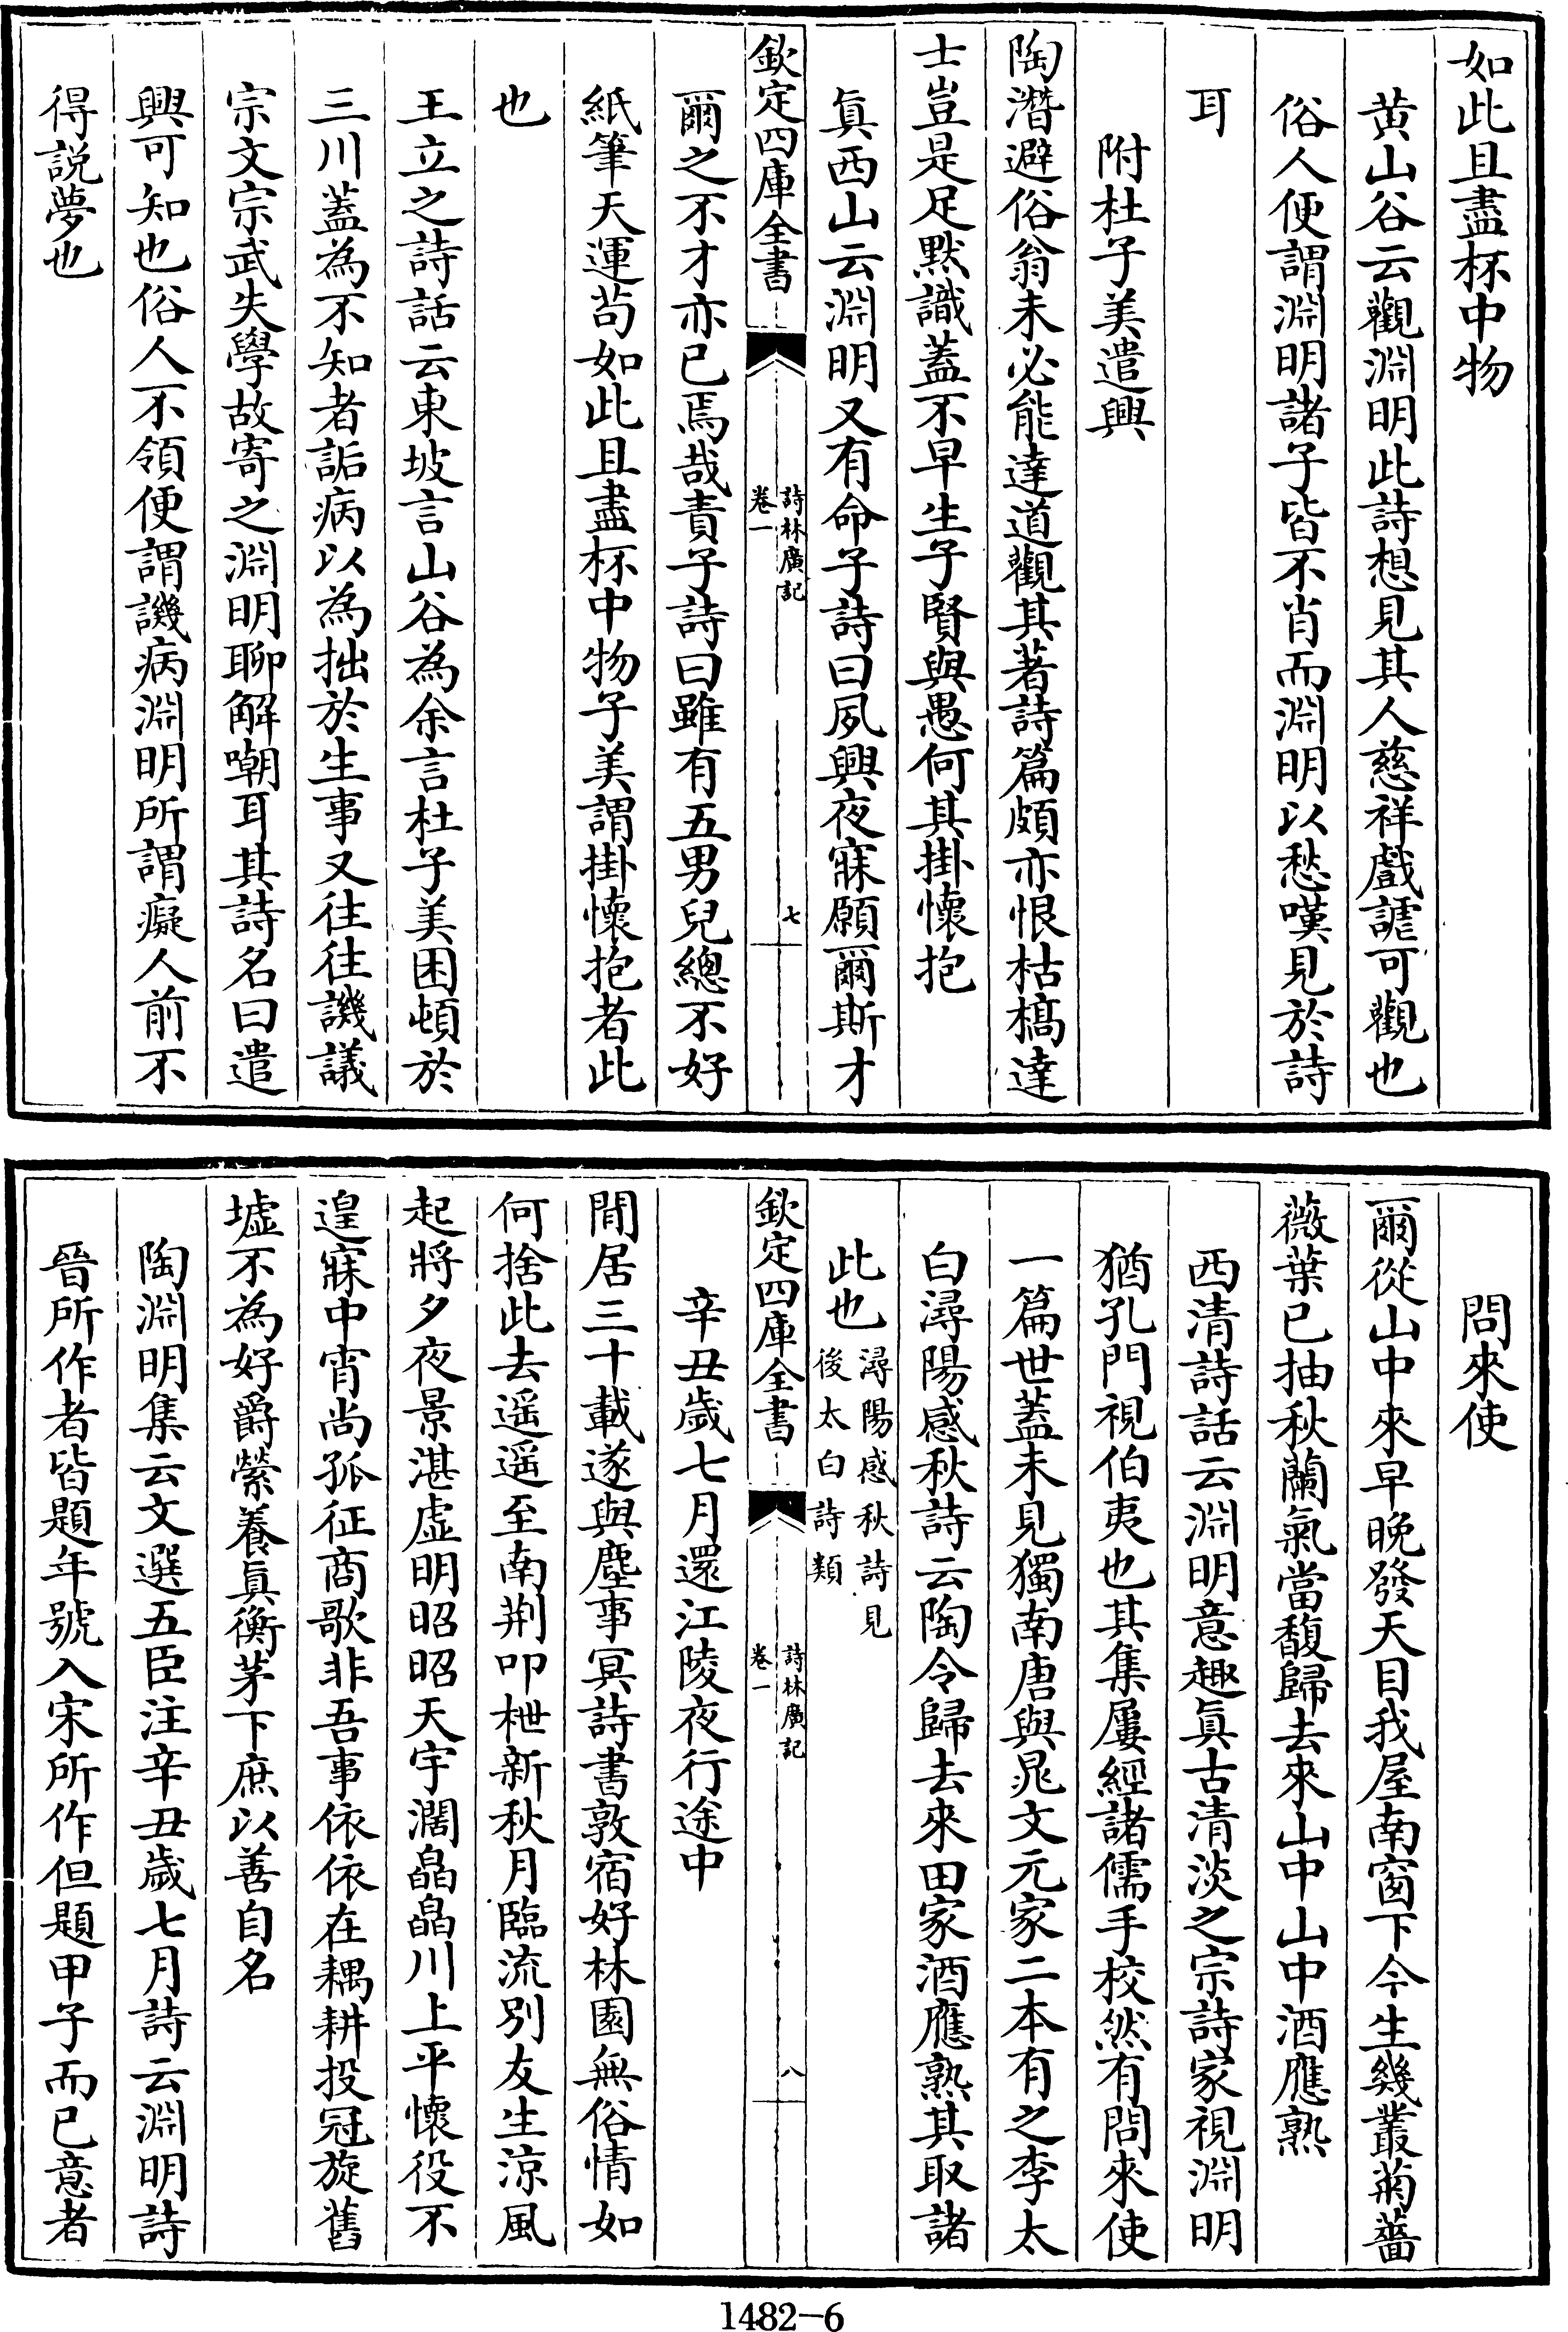 如此且盡杯中物
黄山谷云觀淵明此詩想見其人慈祥戲謔可觀也
俗人便謂淵明諸子皆不肖而淵明以愁嘆見於詩
耳
附杜子美遣興
陶潛避俗翁未必能達道觀其著詩篇頗亦恨枯槁達
士豈是足默識蓋不早生子賢與愚何其掛懷抱
眞西山云淵明又有命子詩曰夙興夜寐願爾斯才
欽定四庫全書
詩林廣記
卷一
七
爾之不才亦已焉哉責子詩曰雖有五男兒總不好
紙筆天運茍如此且盡杯中物子美謂掛懷抱者此
也
王立之詩話云東坡言山谷為余言杜子美困頓於
三川蓋為不知者詬病以為拙於生事又往往譏議
宗文宗武失學故寄之淵明聊解嘲耳其詩名曰遣
興可知也俗人不領便謂譏病淵明所謂癡人前不
得説夢也
問來使
爾從山中來早晩發天目我屋南窗下今生幾叢菊薔
薇葉已抽秋蘭氣當馥歸去來山中山中酒應熟
西清詩話云淵明意趣眞古清淡之宗詩家視淵明
猶孔門視伯夷也其集屢經諸儒手校然有問來使
一篇世蓋未見獨南唐與晁文元家二本有之李太
白潯陽感秋詩云陶令歸去來田家酒應熟其取諸
此也
潯陽感秋詩見
後太白詩類
欽定四庫全書
詩林廣記
卷一
八
辛丑歲七月還江陵夜行途中
閒居三十載遂與塵事冥詩書敦宿好林園無俗情如
何捨此去遥遥至南荆叩枻新秋月臨流别友生涼風
起將夕夜景湛虚明昭昭天宇濶皛皛川上平懷役不
遑寐中宵尚孤征商歌非吾事依依在耦耕投冠旋舊
墟不為好爵縈養眞衡茅下庶以善自名
陶淵明集云文選五臣注辛丑歲七月詩云淵明詩
晉所作者皆題年號入宋所作但題甲子而已意者
1482-6